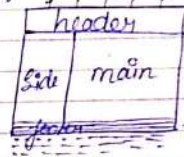 header
Side main
footer